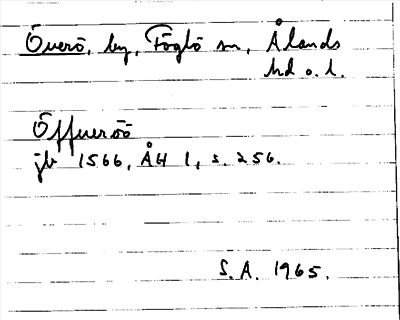 Överö, by, Föglö sn, Ålands
hd o. l.
Öffueröö
jb 1566, ÅH 1, s. 256.
S. A. 1965.